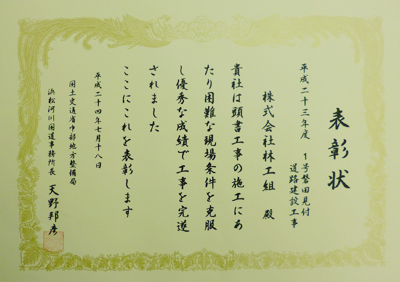 表彰状
平成二十三年度 1号磐田見付
道路建設工事
株式会社林工組 殿
貴社は頭書工事の施工にあ
たり困難な現場条件を克服
し優秀な成績で工事を完遂
されました
ここにこれを表彰します
平成二十四年七月十八日
国土交通省中部地方整備局
浜松河川国道事務所長 天野邦彦